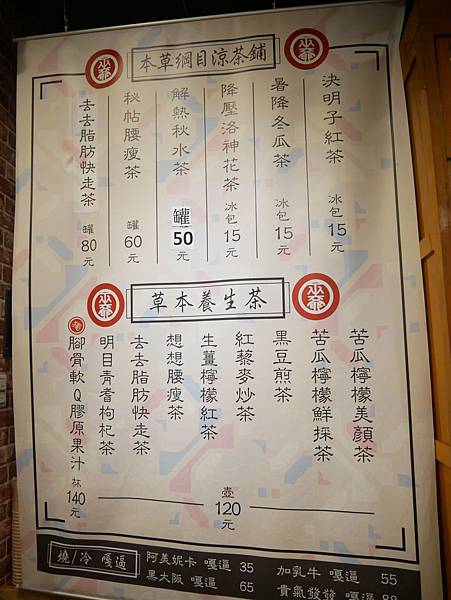 本草綱目涼茶鋪
決明子紅茶 冰包 15元
暑降冬瓜茶 冰包 15元
降壓洛神花茶 冰包 15元
解熱秋水茶 罐 50元
秘帖腰瘦茶 罐 60元
去去脂肪快走茶 罐 80元
草本養生茶
苦瓜檸檬美顏茶
苦瓜檸檬鮮採茶
黑豆煎茶
紅藜麥炒茶
生薑檸檬紅茶
想想腰瘦茶
去去脂肪快走茶
明目青耆枸杞茶
壺 120元
腳骨軟Q膠原果汁 杯 140元
燒/冷 嘎逼
阿美妮卡 嘎逼 35
黑大阪 嘎逼 65
加乳牛 嘎逼 55
貴氣發發 嘎逼 88